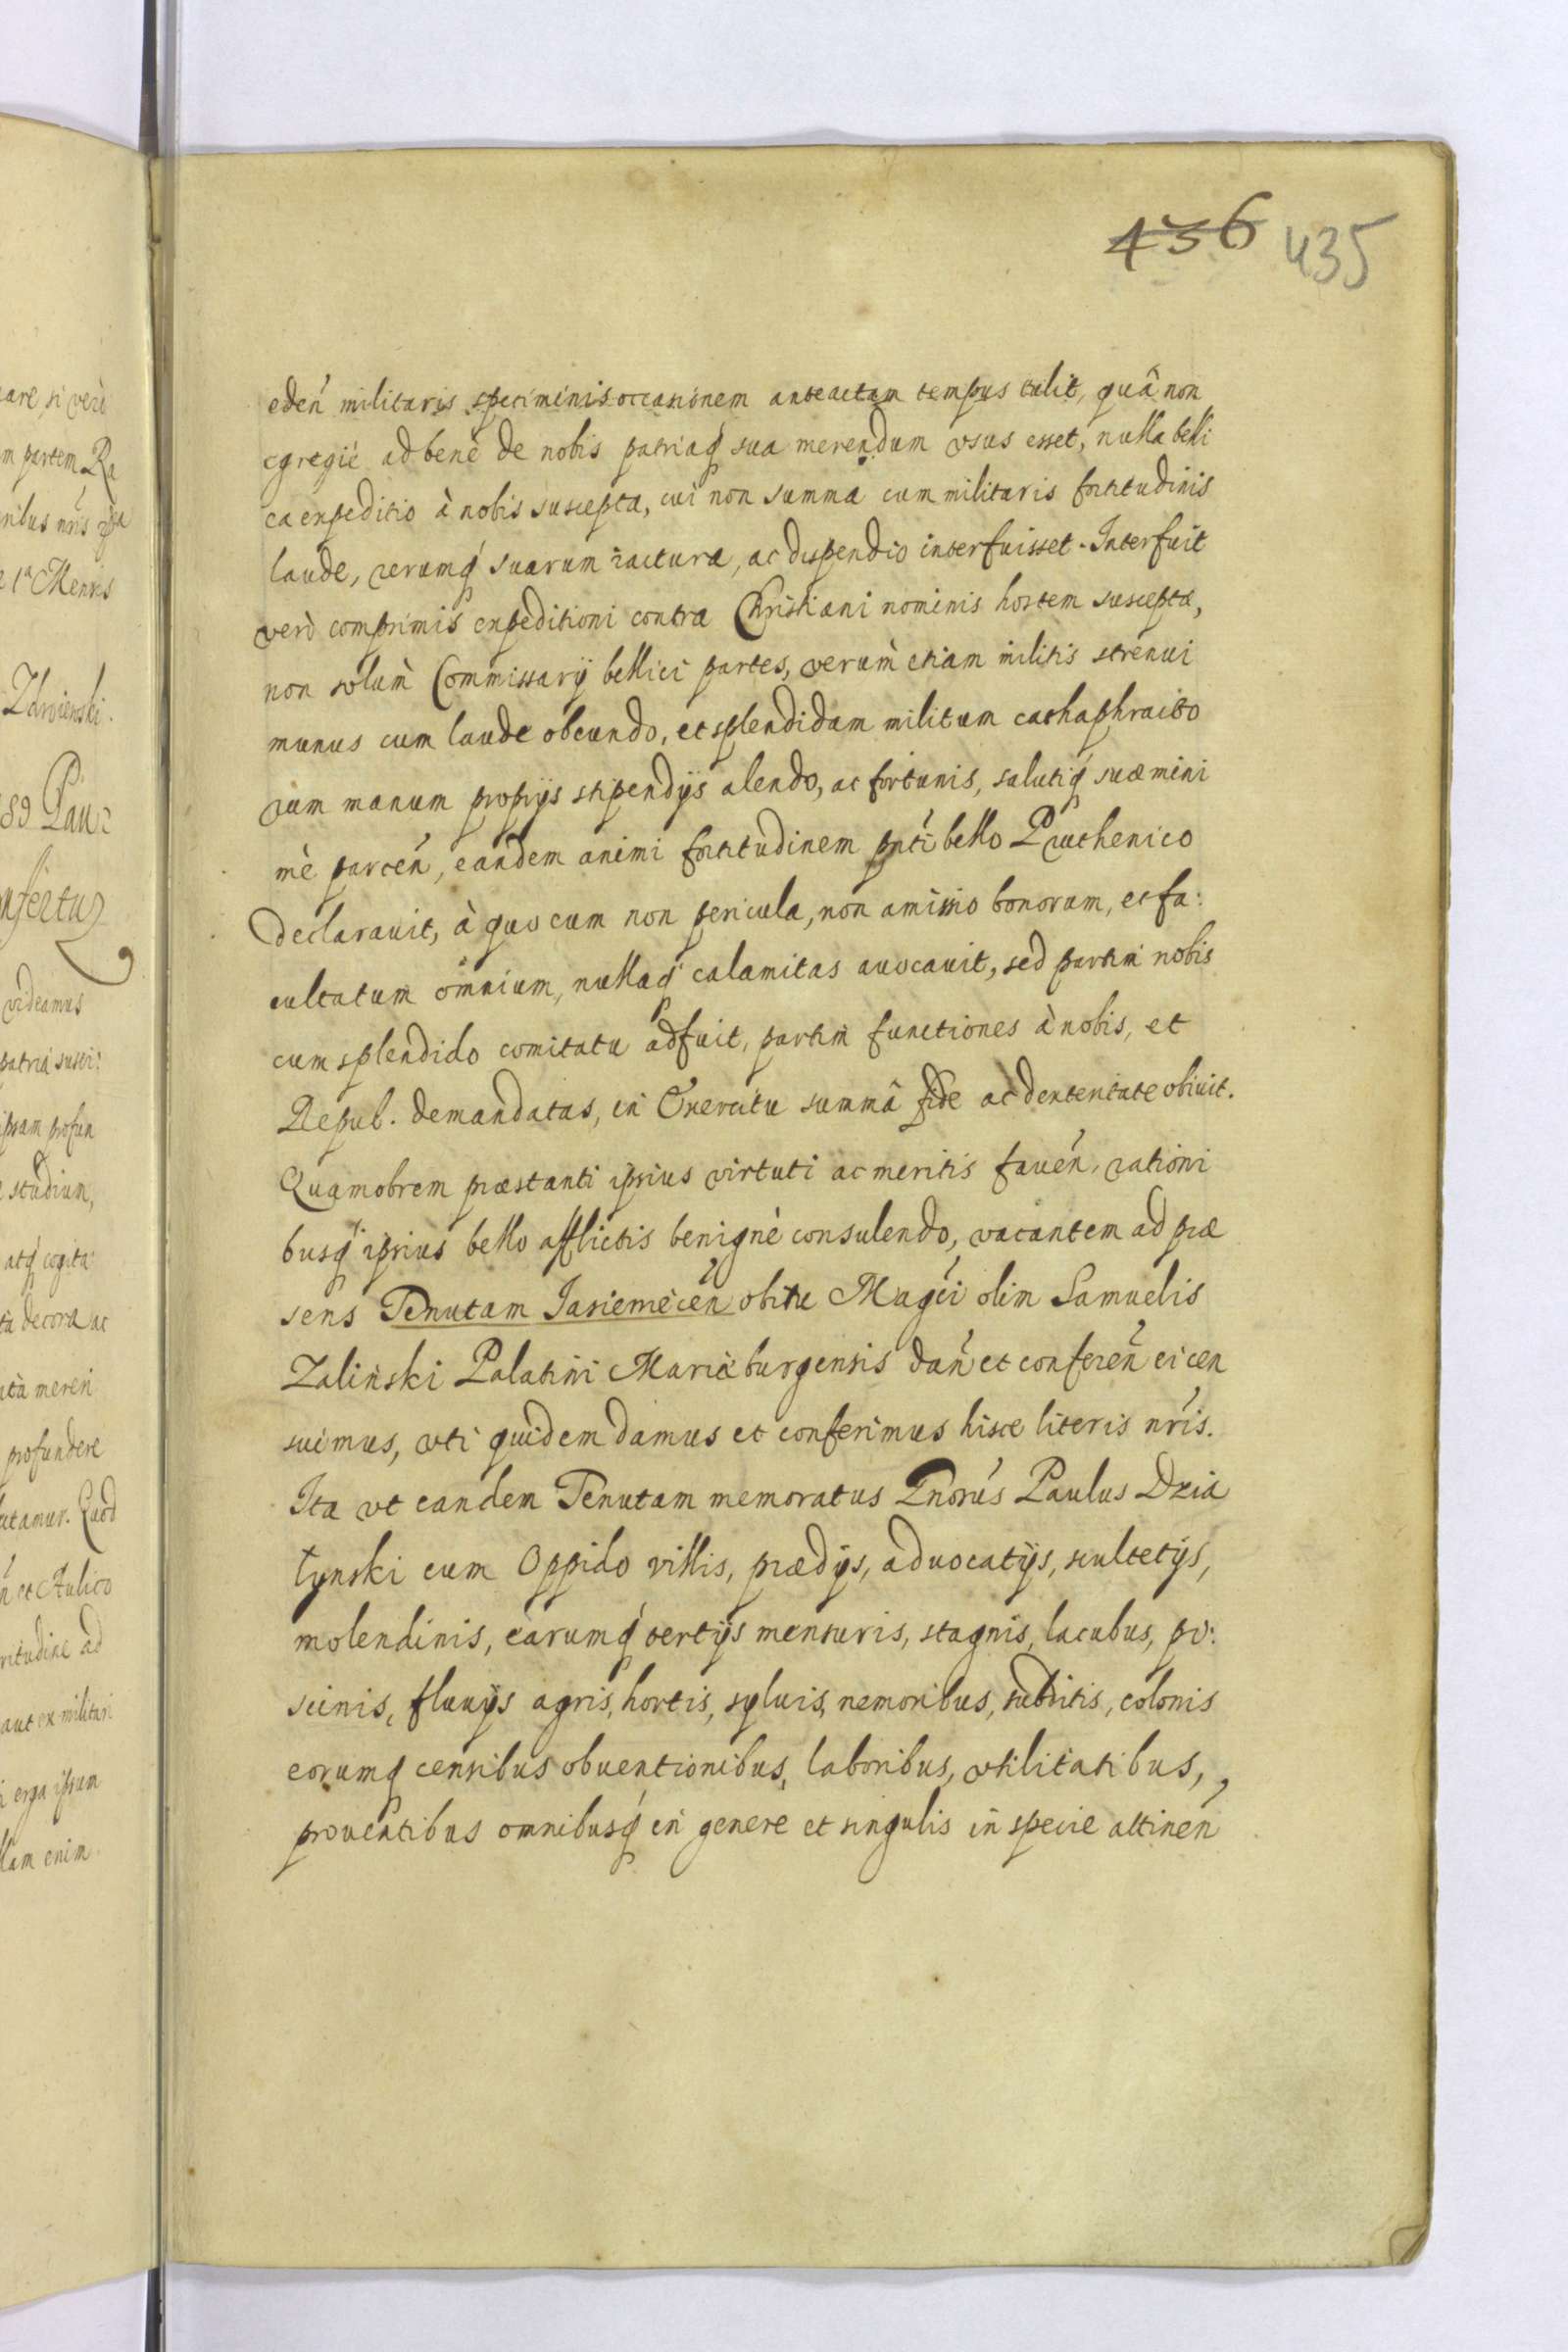 436 435
edeń militaris speciminis occasionem anteactam tempus tulit, quâ non
egregiè ad benè de nobis patriaq́ sua merendum vsus esset, nulla belli
ca expeditio à nobis suscepta, cui non summa cum militaris fortitudinis
laude, rerumq́ suarum iactura, ac dispendio interfuisset. Interfuit
verò comprimis expeditioni contra Christiani nominis hostem suscepta,
non solum̀ Commissarij bellici partes, verum̀ etiam militis strenui
munus cum laude obeundo, et splendidam militum cathaphracto
rum manum proprijs stipendijs alendo, ac fortunis, salutiq́ suæ mini
mè parceń, eandem animi fortitudinem pńti bello Pruthenico
declarauit, à quo cum non pericula, non amissio bonorum, et fa:
cultatum omnium, nullaq́ calamitas auocauit, sed partim nobis
cum splendido comitatu adfuit, partim functiones à nobis, et
Repub. demandatas, in Exercitu summâ fide ac dexteritate obiuit.
Quamobrem præstanti ipsius virtuti ac meritis faueń, rationi
busq́ ipsius bello afflictis benignè consulendo, vacantem ad præ
sens Tenutam Jasiemeceń obitu Magći olim Samuelis
Zalinski Palatini Mariæburgensis dań et confereń ei cen
suimus, vti quidem damus et conferimus hisce literis nŕis.
Ita vt eandem Tenutam memoratus Gnorús Paulus Dzia
łynski cum Oppido villis, prædijs, aduocatijs, scultetijs,
molendinis, earumq́ tertijs mensuris, stagnis, lacubus, pi:
scinis, fluuijs agris, hortis, syluis, nemoribus, subditis, colonis
eorumq censibus obuentionibus, laboribus, vtilitatibus,
prouentibus omnibusq́ in genere et singulis in specie attineń